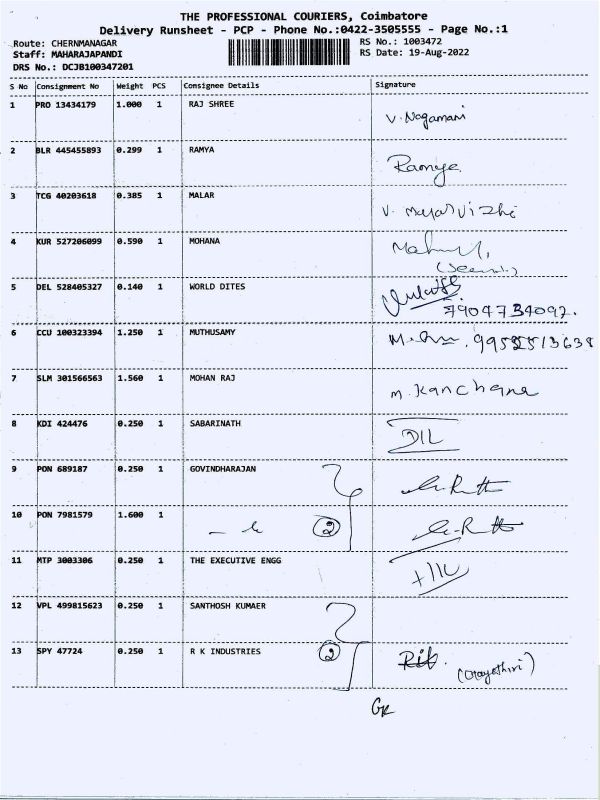 THE PROFESSIONAL COURIERS, Coimbatore
Delivery Runsheet - PCP - Phone No.:0422-3505555 - Page No.:1
Route: CHERNMANAGAR RS No.: 1003472
Staff: MAHARAJAPANDI RS Date: 19-Aug-2022
DRS No.: DCJB100347201
S No Consignment No Weight PCS Consignee Details Signature
1 PRO 13434179 1.000 1 RAJ SHREE V. Nagamani
2 BLR 445455893 0.299 1 RAMYA Ramye
3 TCG 40203618 0.385 1 MALAR V. Malarvizhi
4 KUR 527206099 0.590 1 MOHANA
5 DEL 528405327 0.140 1 WORLD DITES
7904734092.
6 CCU 100323394 1.250 1 MUTHUSAMY 9952513638
7 SLM 301566563 1.560 1 MOHAN RAJ M. Kanchana
8 KDI 424476 0.250 1 SABARINATH
9 PON 689187 0.250 1 GOVINDHARAJAN
10 PON 7981579 1.600 1 2
11 MTP 3003306 0.250 1 THE EXECUTIVE ENGG
12 VPL 499815623 0.250 1 SANTHOSH KUMAER
13 SPY 47724 0.250 1 R K INDUSTRIES 2